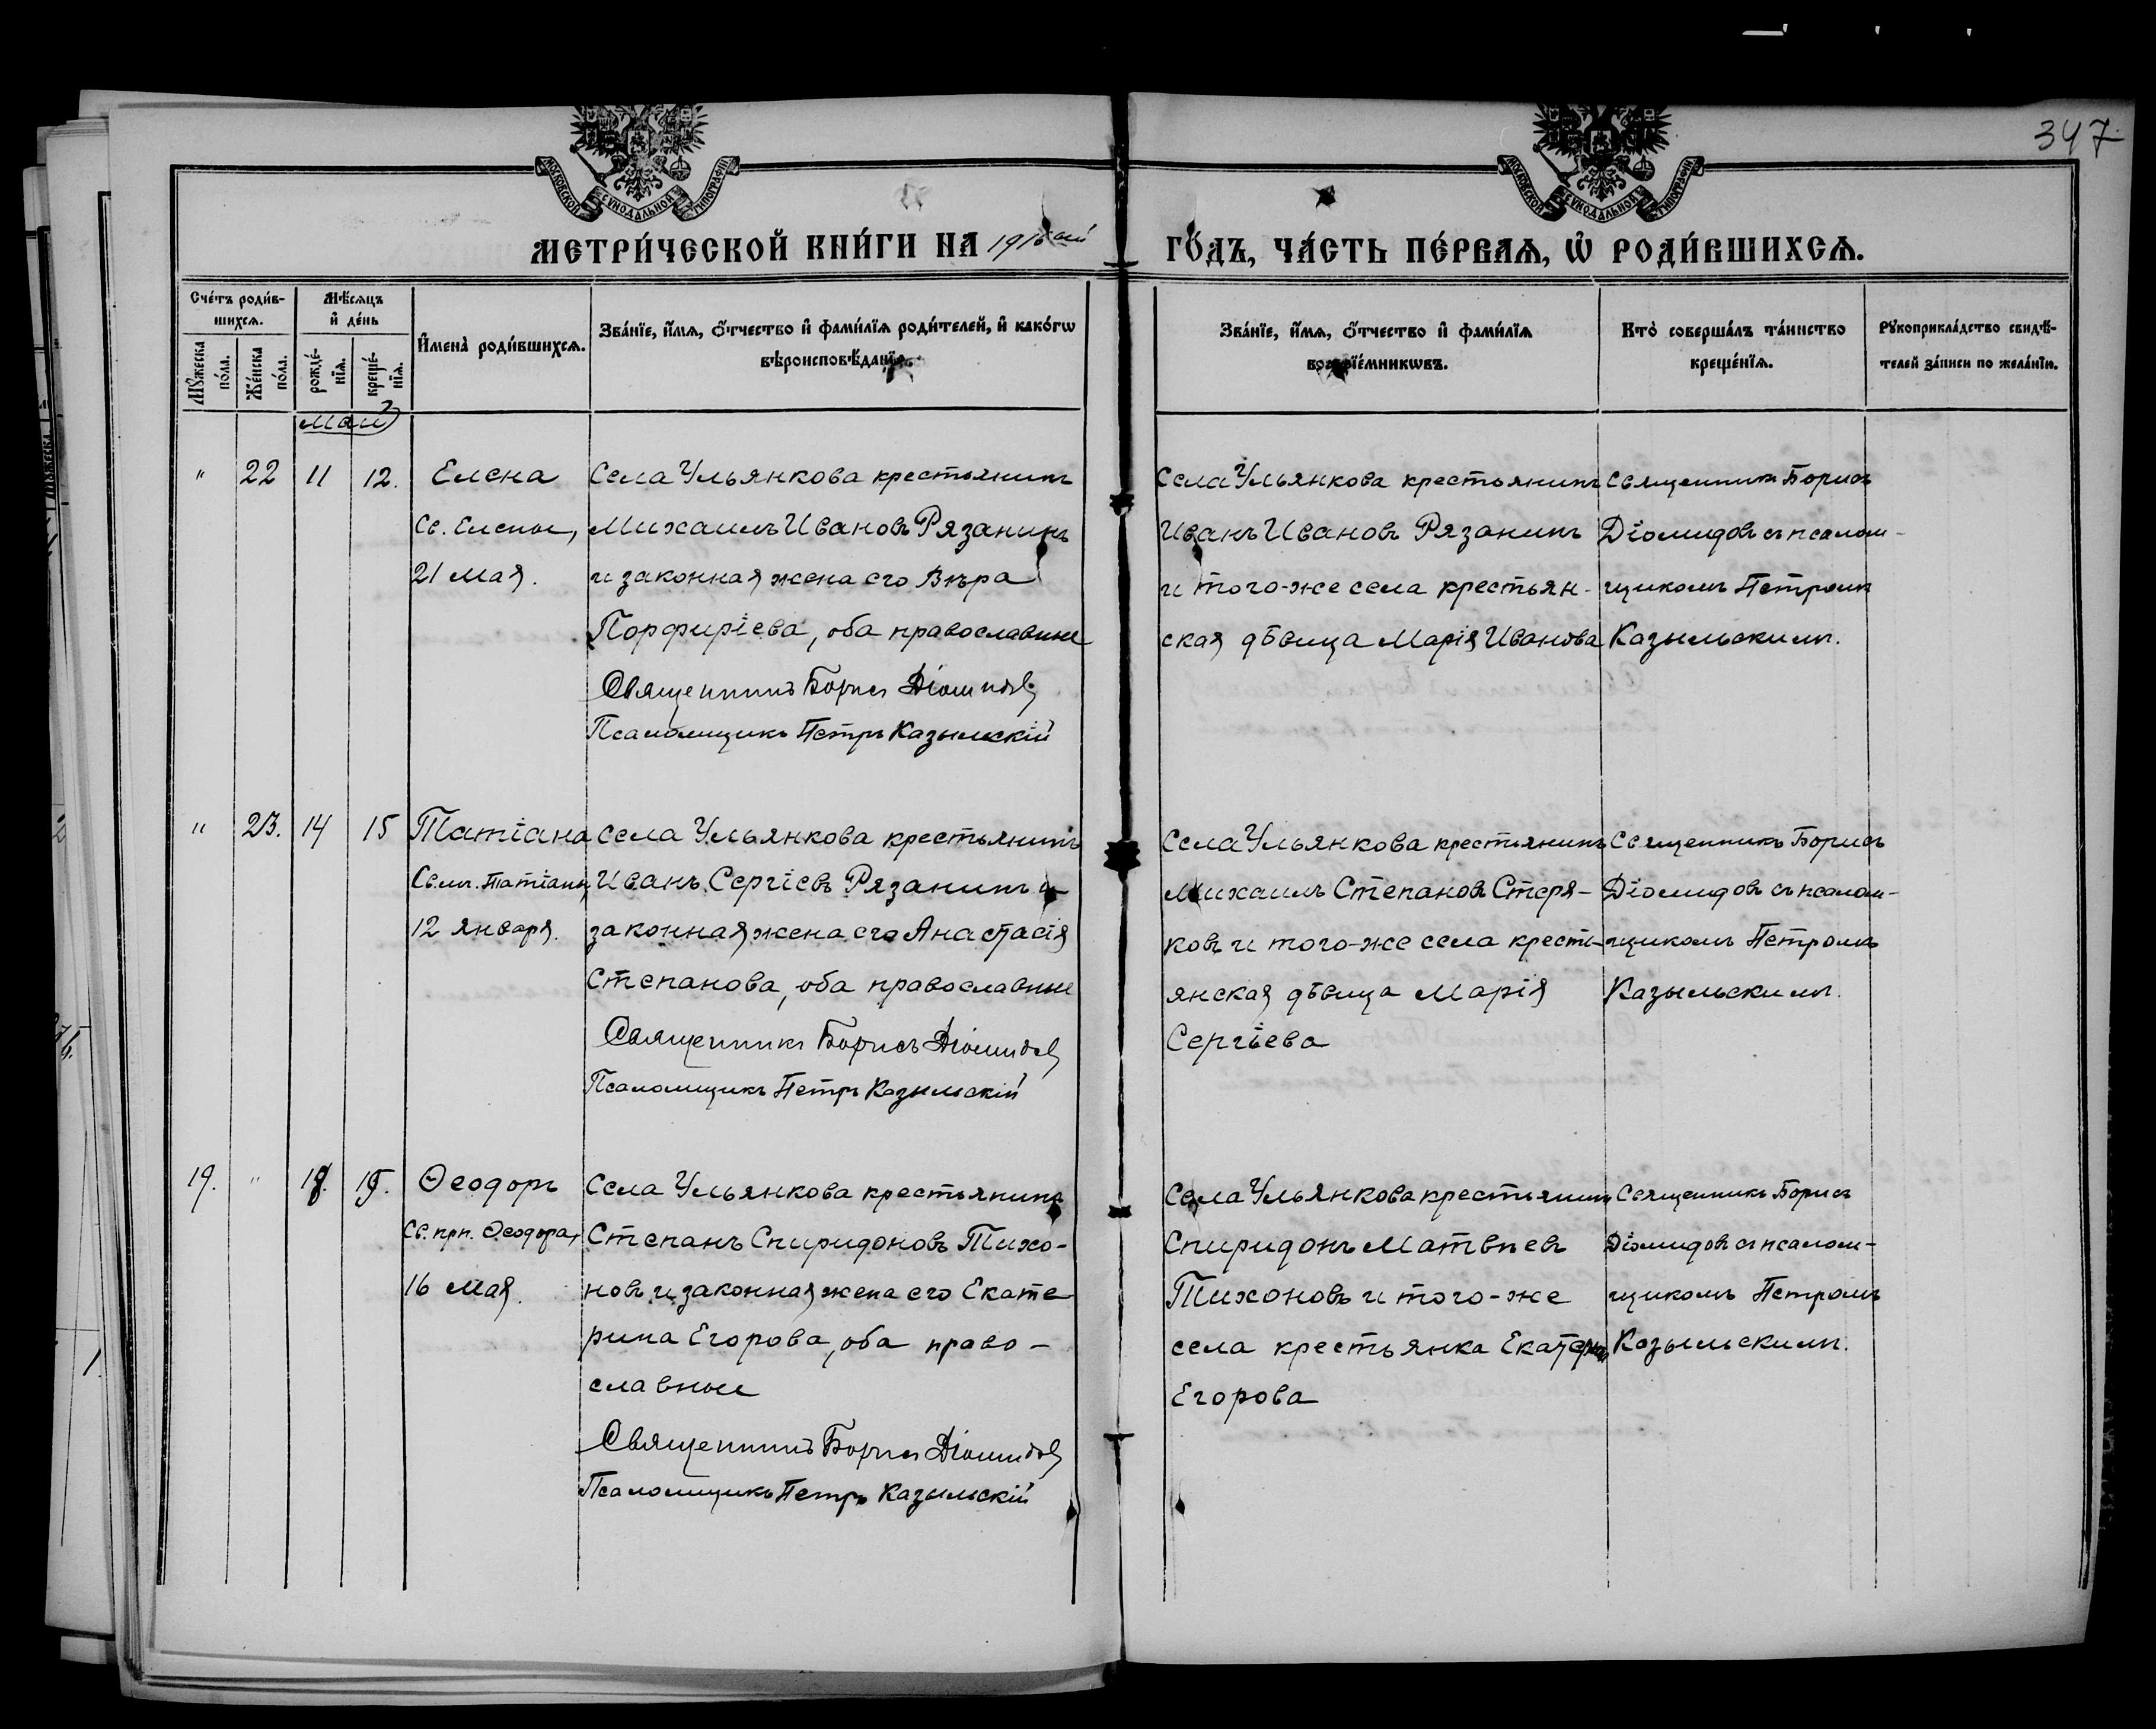 347
МОСКОВСКОЙ СѴНОДАЛЬНОЙ ТИПОГРАФІИ
МОСКОВСКОЙ СѴНОДАЛЬНОЙ ТИПОГРАФІИ
МЕТРИ́ЧЕСКОЙ КНИ́ГИ НА ГО́ДЪ, ЧА́СТЬ ПЕ́РВАѦ, Ѡ҆ РОДИ́ВШИХСѦ.
Сче́тъ роди́в-
шихсѧ.
Мѣ́сѧцъ
и҆ де́нь
Мꙋ́жеска
по́ла.
Же́нска
по́ла.
рожде́-
нїѧ.
креще́-
нїѧ.
И҆мена̀ роди́вшихсѧ.
Зва́нїе, и҆́мѧ, ѻ҆́тчество и҆ фами́лїѧ роди́телей, и҆ како́гѡ
вѣроисповѣ́данїѧ.
Зва́нїе, и҆́мѧ, ѻ҆́тчество и҆ фами́лїѧ
воспрїе́мникѡвъ.
Кто̀ соверша́лъ та́инство
креще́нїѧ.
Рꙋкоприкла́дство свидѣ́-
телей за́писи по жела́нїю.
Май
" 22 11 12.
Елена
Св. Елены,
21 мая.
Села Ульянкова крестьянинъ
Михаилъ Ивановъ Рязанинъ
и законная жена его Вѣра
Порфиріева, оба православные
Священникъ Борисъ Діомидовъ
Псаломщикъ Петръ Казыльскій
Села Ульянкова крестьянинъ
Иванъ Ивановъ Рязанинъ
и того-же села крестьян-
ская дѣвица Марія Иванова
Священникъ Борисъ
Діомидовъ съ псалом-
щикомъ Петромъ
Казыльскимъ.
" 23. 14 15
Татіана
Св. мч. Татіаны,
12 января.
Села Ульянкова крестьянинъ
Иванъ Сергіевъ Рязанинъ и
законная жена его Анастасія
Степанова, оба православные
Священникъ Борисъ Діомидовъ
Псаломщикъ Петръ Казыльскій
Села Ульянкова крестьянинъ
Михаилъ Степановъ Стеря-
ковъ и того-же села кресть-
янская дѣвица Марія
Сергіева
Священникъ Борисъ
Діомидовъ съ псалом-
щикомъ Петромъ
Казыльскимъ.
19. "
Ѳеодоръ
Св. прп. Ѳеодора,
16 мая.
Села Ульянкова крестьянинъ
Степанъ Спиридоновъ Тихо-
новъ и законная жена его Екате
рина Егорова, оба право-
славные
Священникъ Борисъ Діомидовъ
Псаломщикъ Петръ Казыльскій
Села Ульянкова крестьянинъ
Спиридонъ Матвѣевъ
Тихоновъ и того-же
села крестьянка Екатерина
Егорова
Священникъ Борисъ
Діомидовъ съ псалом-
щикомъ Петромъ
Казыльскимъ.